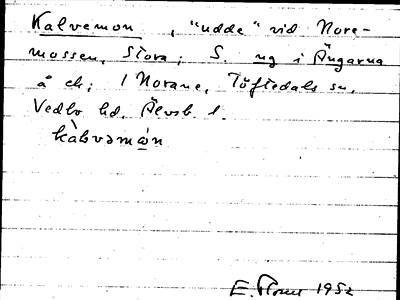 Kalvemon, "udde" vid Nore-
mossen, Stora; S. ng i Ängarna
å ek; 1 Norane, Töftedals sn,
Vedbo hd, Älvsb. l.
kàlvəmón
E. 1952